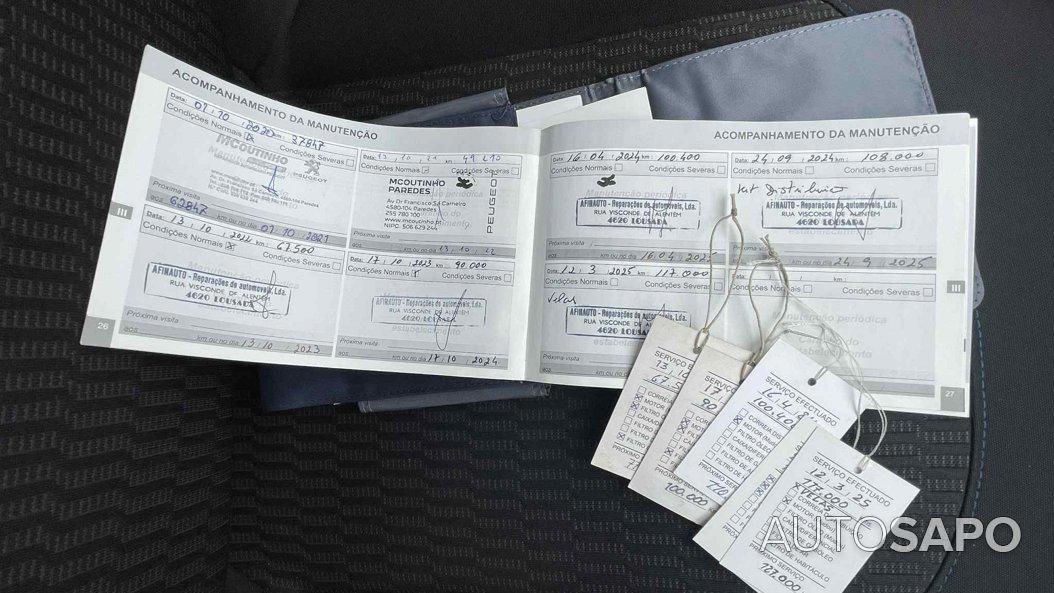 ACOMPANHAMENTO DA MANUTENÇÃO
Data: 07.10.2020 km: 37847
Condições Normais
Condições Severas
MCOUTINHO
PEUGEOT
Próxima visita
62847 km ou no dia 07.10.2021
Data: 13, 10, 21 km 49 210
Condições Normais
Condições Severas
MCOUTINHO
PAREDES
Av Dr Francisco Sá Carneiro
4580-104 Paredes
255 780 100
www.mcoutinho.pt
NIPC. 506 629 244
PEUGEOT
Próxima visita
aos km ou no dia 13, 10, 22
Data: 13, 10, 2022 km: 67.500
Condições Normais
Condições Severas
AFINAUTO - Reparações de automóveis, Lda.
RUA VISCONDE DE ALENTÉM
4620 LOUSADA
Próxima visita
aos km ou no dia 13, 10, 2023
Data: 17, 10, 2023 km: 90.000
Condições Normais
Condições Severas
AFINAUTO - Reparações de automóveis, Lda.
RUA VISCONDE DE ALENTÉM
4620 LOUSADA
Próxima visita
aos km ou no dia 17, 10, 2024
III
26
ACOMPANHAMENTO DA MANUTENÇÃO
Data: 16, 04, 2024 km: 100.400
Condições Normais
Condições Severas
Manutenção periódica
AFINAUTO - Reparações de automóveis, Lda.
RUA VISCONDE DE ALENTÉM
4620 LOUSADA
Próxima visita
aos km ou no dia 16, 04, 2025
Data: 24, 09, 2024 km: 108.000
Condições Normais
Condições Severas
Kit Distribuição
AFINAUTO - Reparações de automóveis, Lda.
RUA VISCONDE DE ALENTÉM
4620 LOUSADA
km ou no dia 24, 9, 2025
Data: 12, 3, 2025 km: 117.000
Condições Severas
Velas
AFINAUTO - Reparações de automóveis, Lda.
RUA VISCONDE DE ALENTÉM
4620 LOUSADA
Próxima visita
aos
km:
Condições Normais
Condições Severas
III
27
SERVIÇO
13, 10
67.5
FILTRO
PRÓXIMO
SERVIÇO
17,
90
PRÓXIMO
100.000
SERVIÇO EFECTUADO
16, 4,
100.400
CORREIA DIS
MOTOR
FILTRO
CAIXA/DIFER
FILTRO DE
PRÓXIMO SER
110
SERVIÇO EFECTUADO
12, 3, 25
117.000
VELAS
MOTOR
FILTRO ÓLEO
HABITÁCULO
PRÓXIMO SERVIÇO
127.000
AUTOSAPO